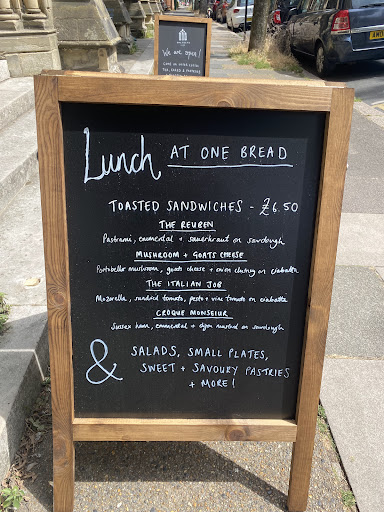 We are open!
Lunch AT ONE BREAD
TOASTED SANDWICHES - £6.50
THE REUBEN
Pastrami, emmental + sauerkraut on sourdough
MUSHROOM + GOATS CHEESE
Portobello mushroom, goats cheese + onion chutney on ciabatta
THE ITALIAN JOB
Mozarella, sundried tomato, pesto + vine tomato on ciabatta
CROQUE MONSEIUR
Sussex ham, emmental + dijon mustard on sourdough
& SALADS, SMALL PLATES,
SWEET + SAVOURY PASTRIES
+ MORE!